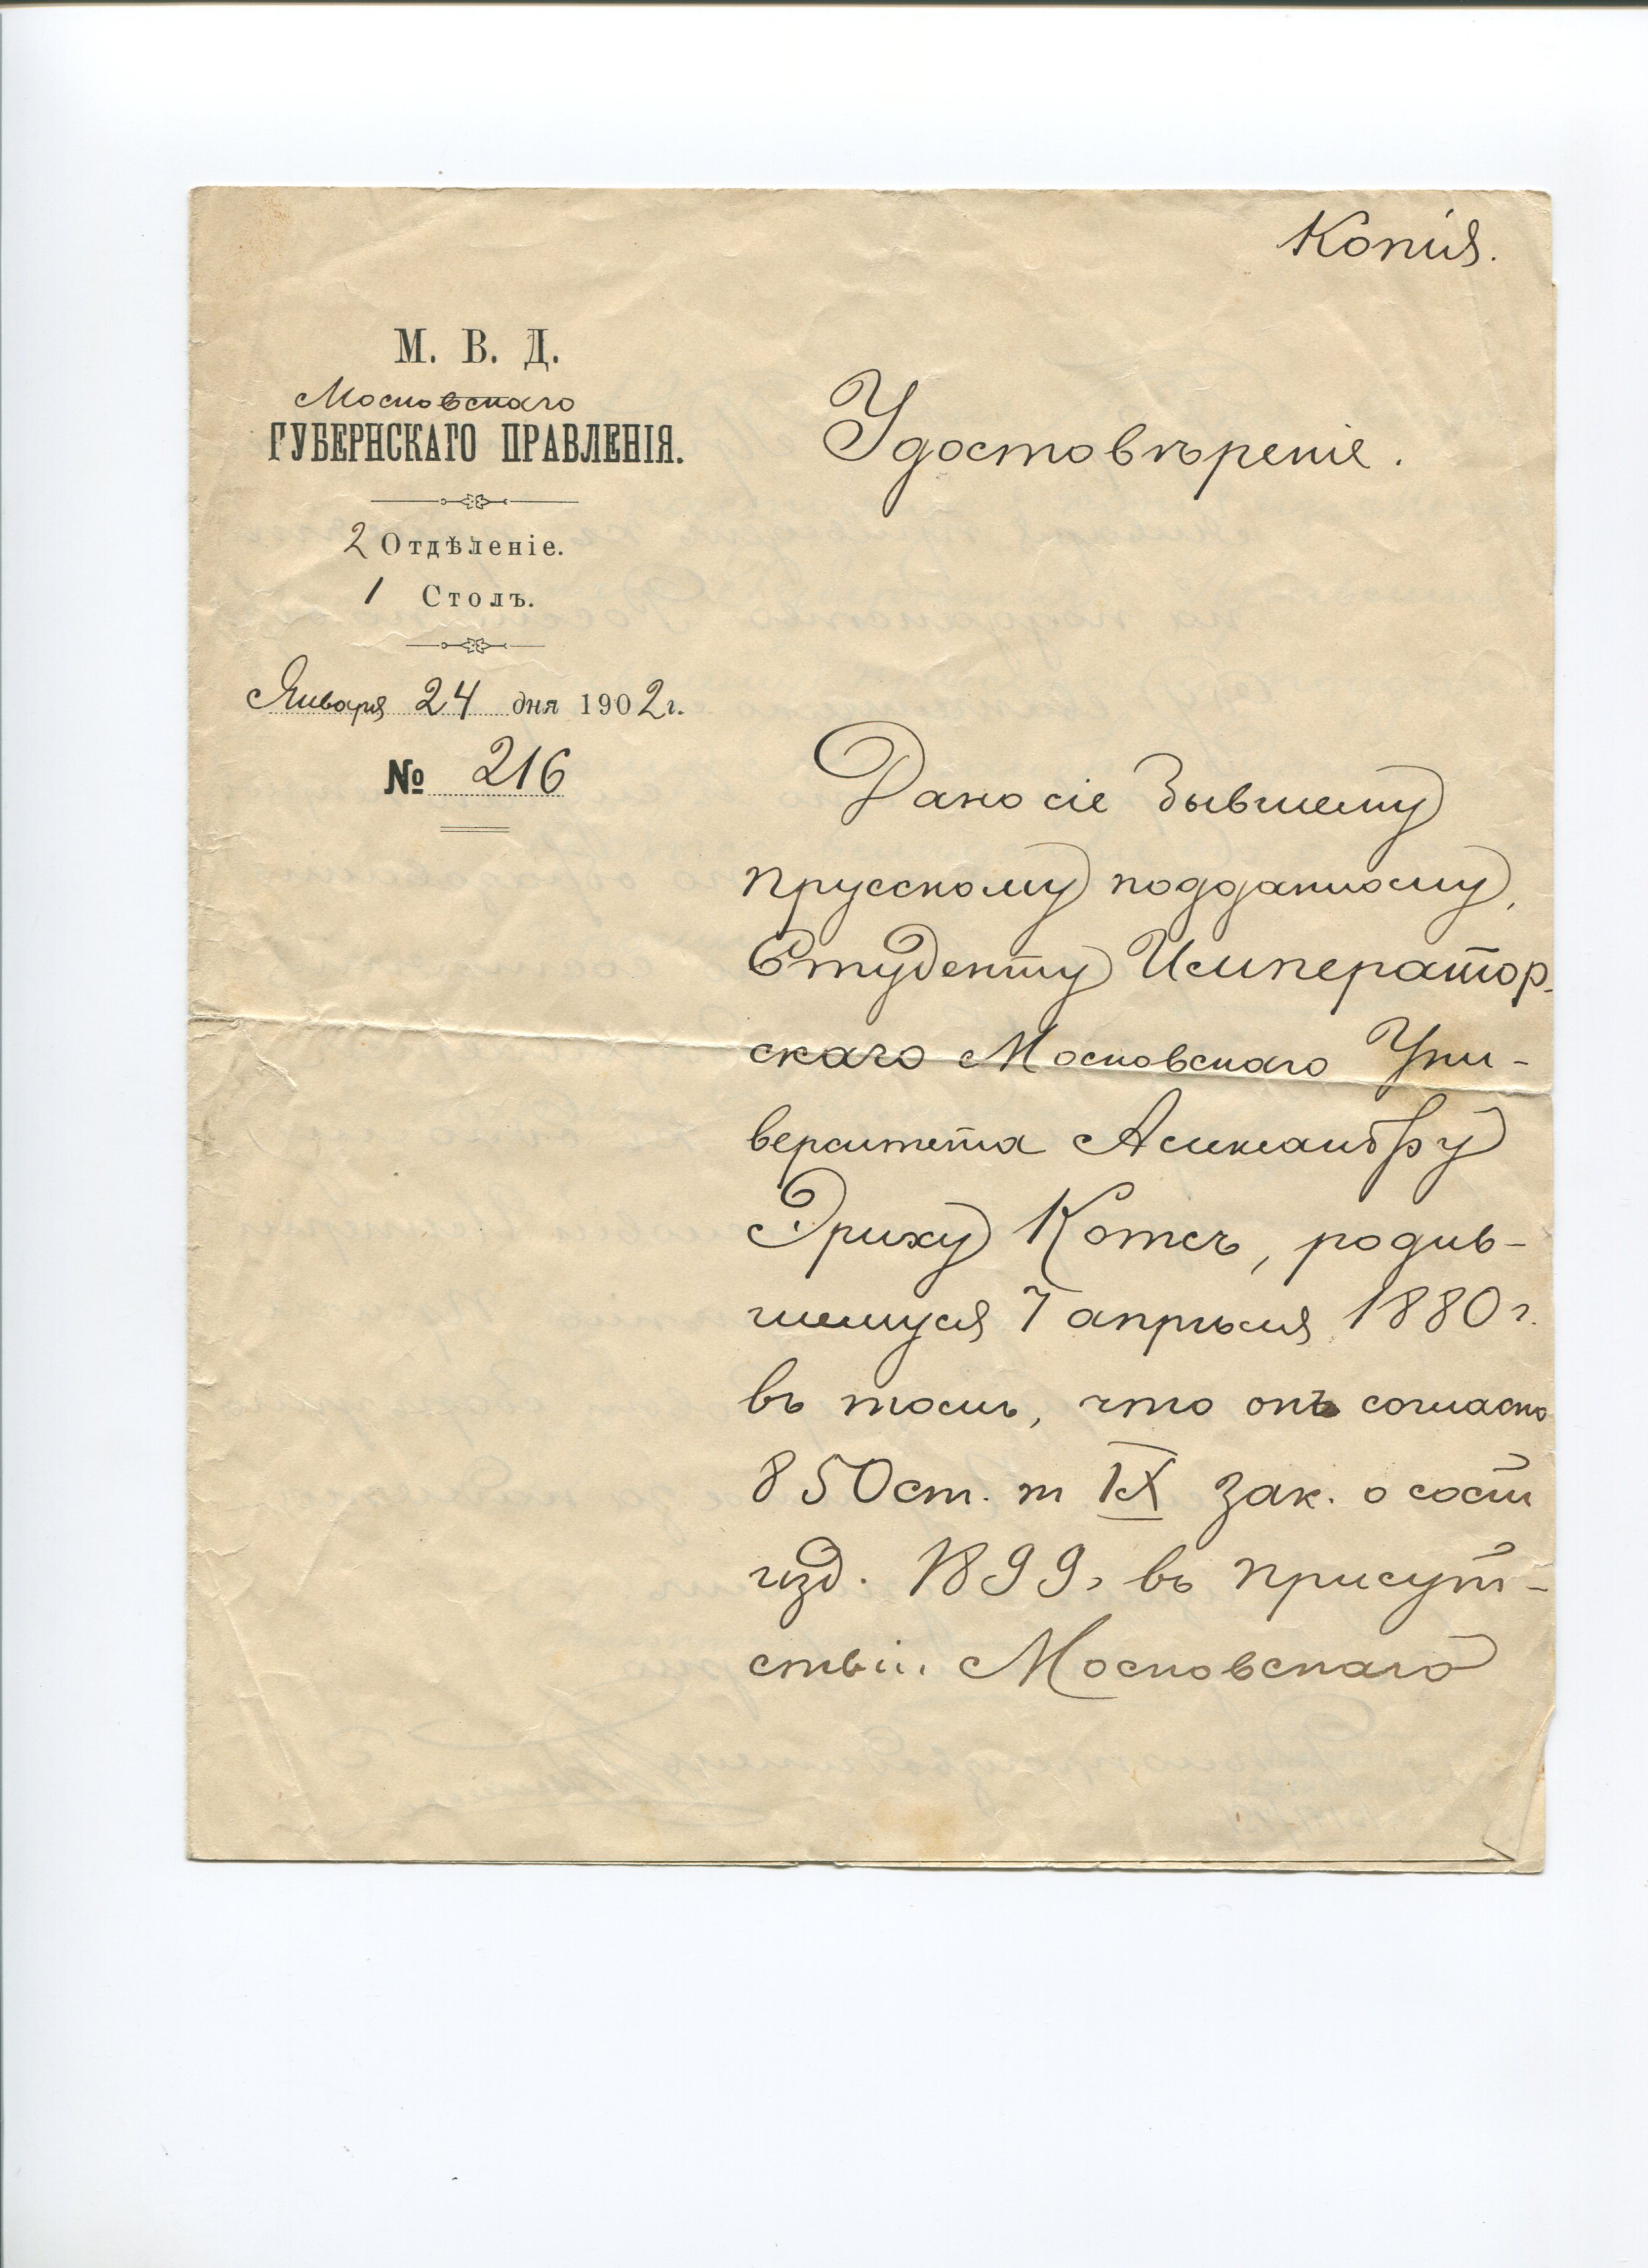 Копія.
М. В. Д.
Московскаго
ГУБЕРНСКАГО ПРАВЛЕНІЯ.
2 Отдѣленіе.
1 Столъ.
Января 24 дня 1902 г.
№ 216
Удостовѣреніе.
Дано сіе бывшему
прусскому подданному,
Студенту Император-
скаго Московскаго Уни-
верситета Александру
Эриху Котсъ, родив-
шемуся 7 апрѣля 1880 г.
въ томъ, что онъ согласно
850 ст. т IX зак. о сост
изд. 1899, въ присут-
ствіи Московскаго